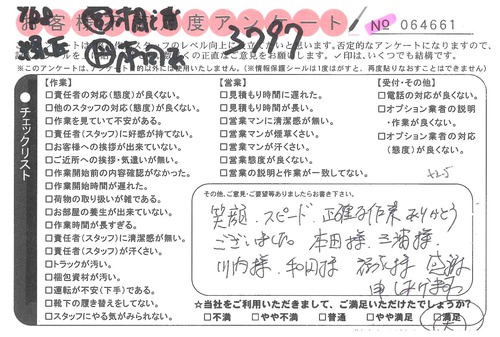 お客様満足度アンケート
No 064661
3797
※このアンケートは、アンケート目的以外には使用いたしません。（※情報保護シールは1度はがすと、再度貼りなおすことはできません）
チェックリスト
【作業】
□責任者の対応（態度）が良くない。
□他のスタッフの対応（態度）が良くない。
□作業を見ていて不安がある。
□責任者（スタッフ）に好感が持てない。
□お客様への挨拶が出来ていない。
□ご近所への挨拶・気遣いが無い。
□作業開始前の内容確認がなかった。
□作業開始時間が遅れた。
□荷物の取り扱いが雑である。
□お部屋の養生が出来ていない。
□作業時間が長すぎる。
□責任者（スタッフ）に清潔感が無い。
□責任者（スタッフ）が汗くさい。
□トラックが汚い。
□梱包資材が汚い。
□運転が不安（下手）である。
□靴下の履き替えをしてない。
□スタッフにやる気がみられない。
【営業】
□見積もり時間に遅れた。
□見積もり時間が長い。
□営業マンに清潔感が無い。
□営業マンが煙草くさい。
□営業マンが汗くさい。
□営業態度が良くない。
□営業の説明と作業が一致してない。
【受付・その他】
□電話の対応が良くない。
□オプション業者の説明・作業が良くない。
□オプション業者の対応（態度）が良くない。
その他、ご意見・ご要望等ありましたらお書き下さい。
笑顔、スピード、正確な作業ありがとう
ございました。本田様、三浦様、
川内様、和田様 様 感謝
申し上げます
☆当社をご利用いただきまして、ご満足いただけたでしょうか？
□不満 □やや不満 □普通 □やや満足 □満足